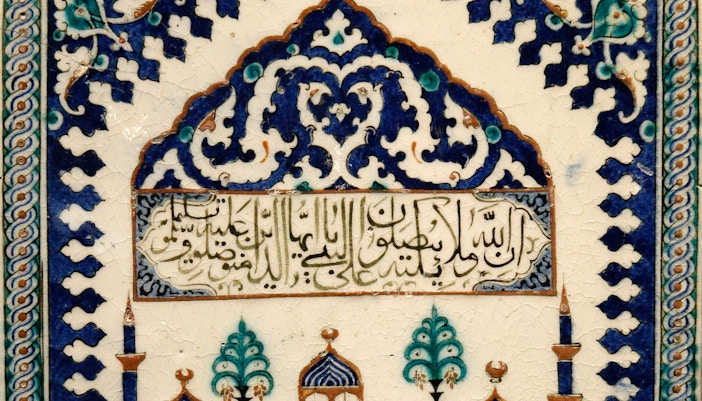 ان الله وملائكته يصلون على النبي يا ايها الذين امنوا صلوا عليه وسلموا تسليما